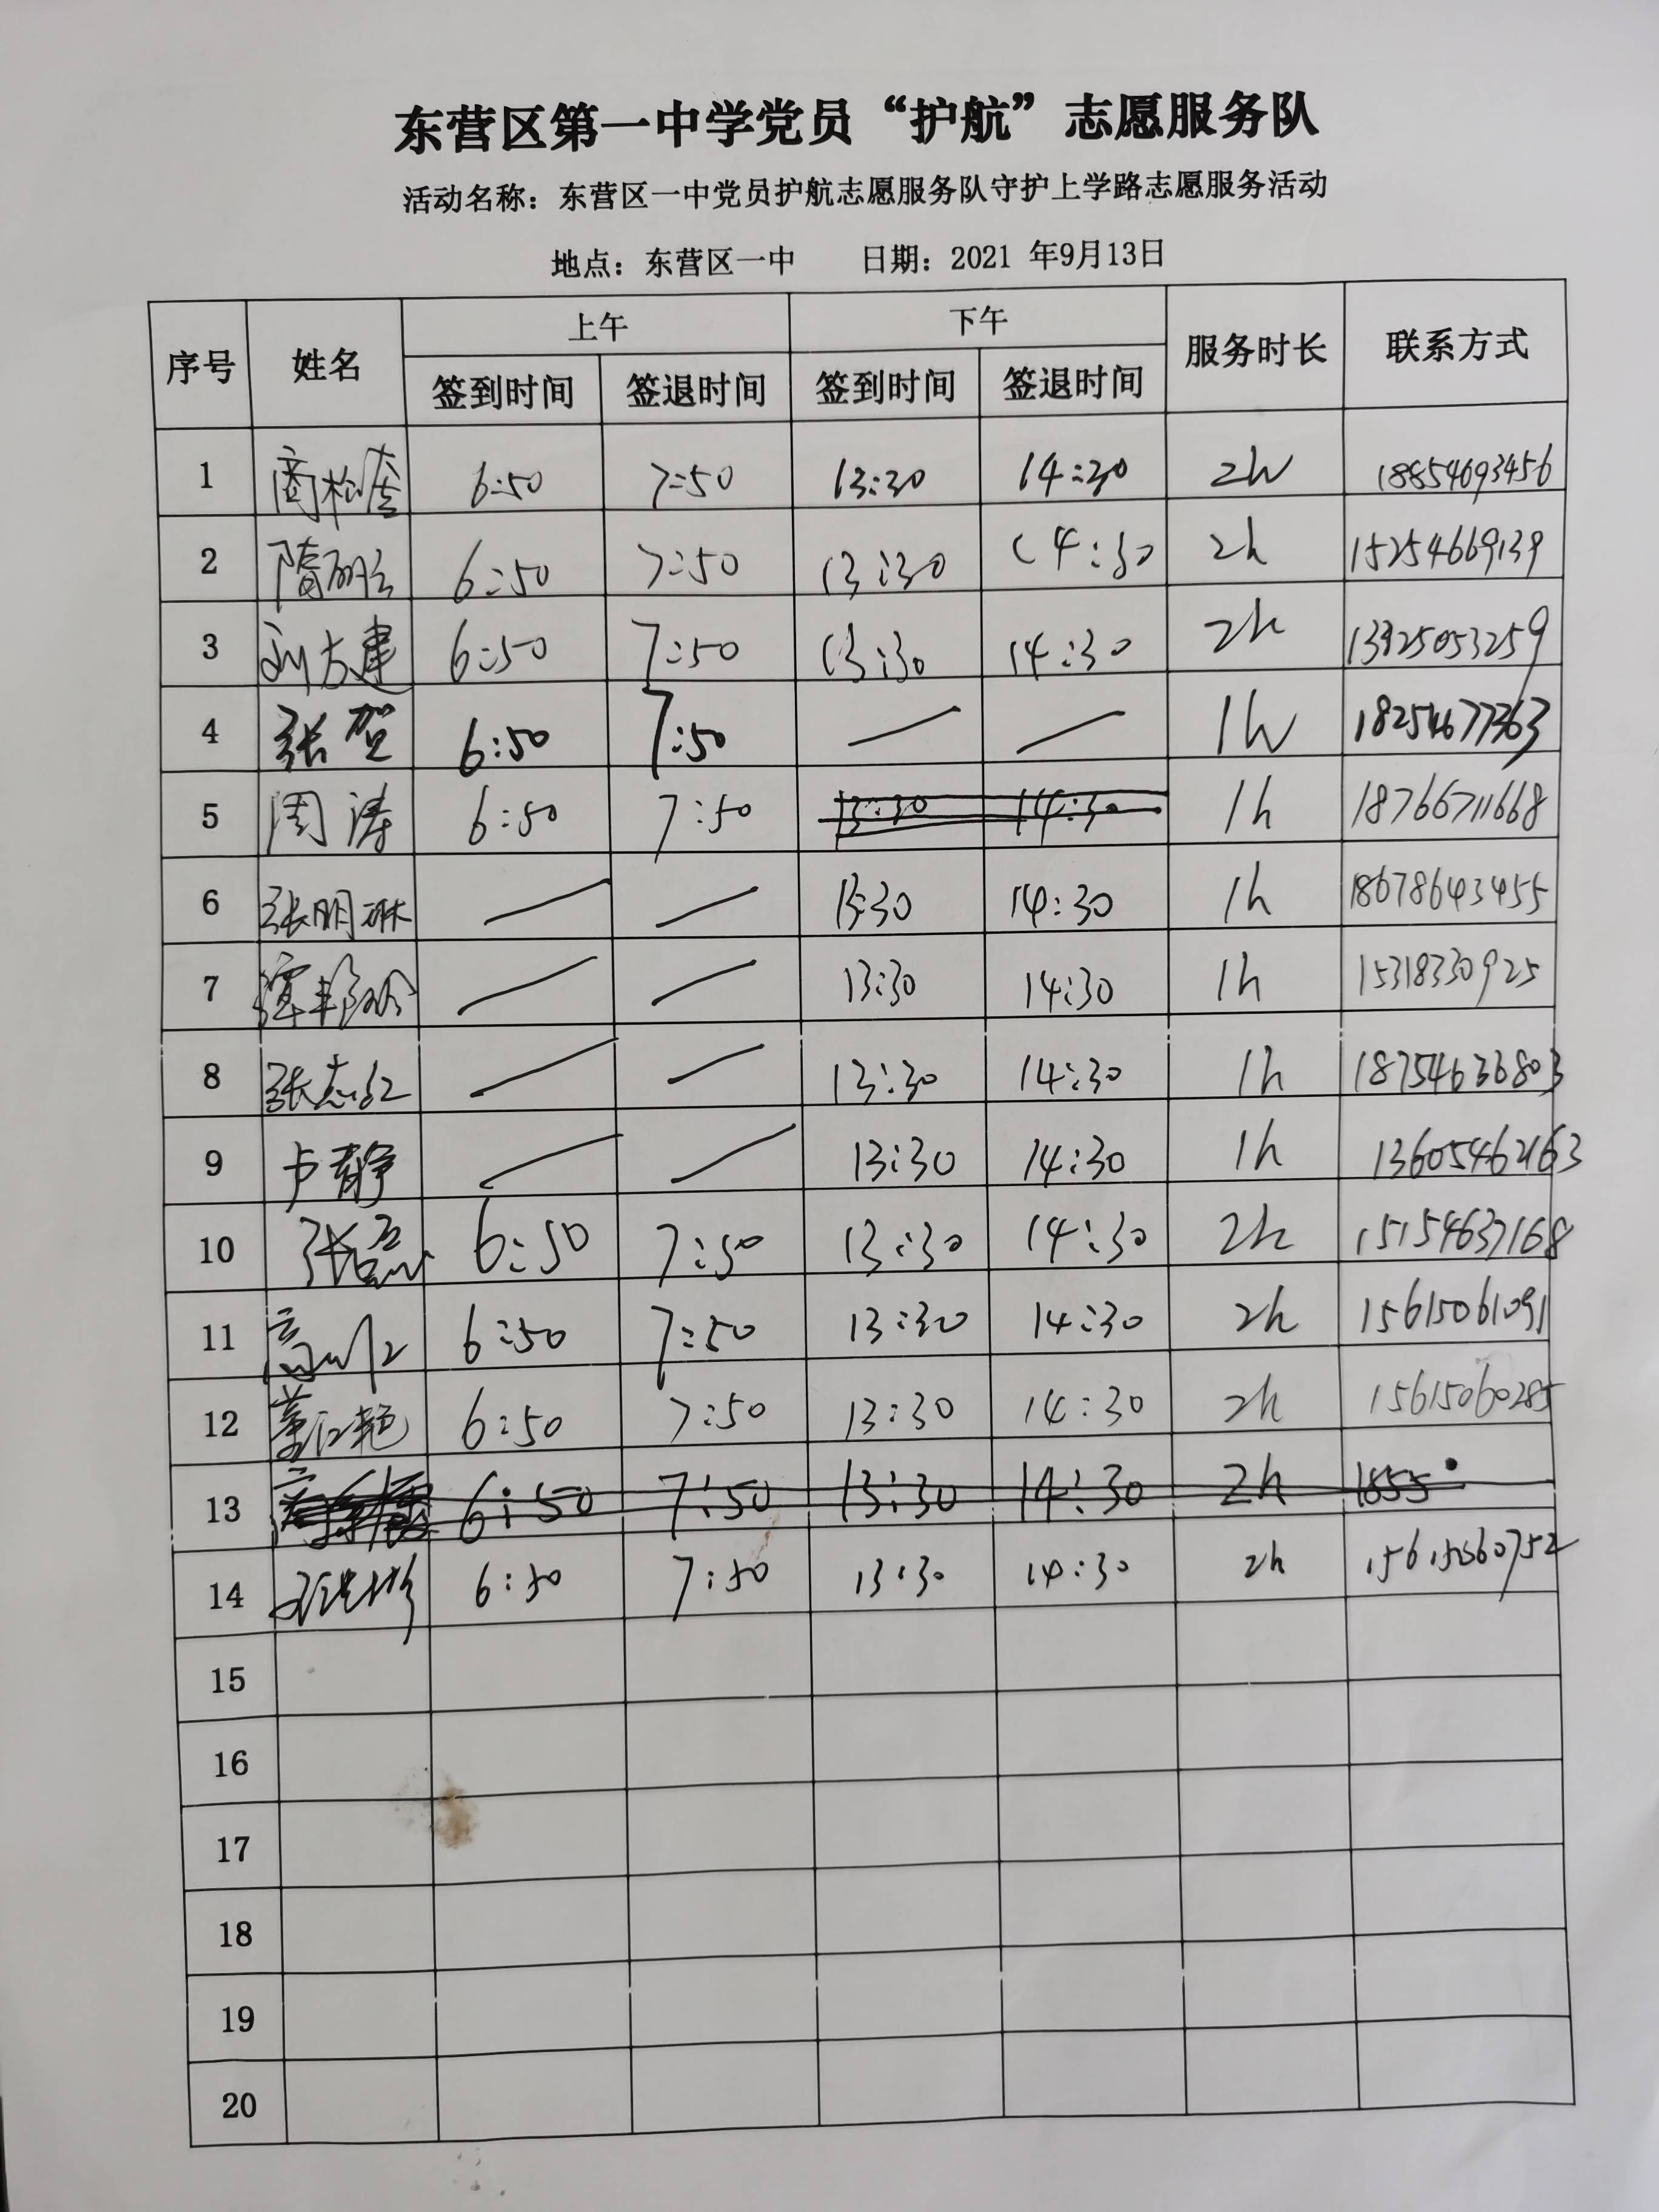 东营区第一中学党员“护航”志愿服务队
活动名称：东营区一中党员护航志愿服务队守护上学路志愿服务活动
地点：东营区一中 日期：2021 年9月13日
序号 姓名 上午 下午 服务时长 联系方式
签到时间 签退时间 签到时间 签退时间
1 6:50 7:50 13:30 14:30 2h 18854693456
2 6:50 7:50 13:30 14:30 2h 15254669139
3 6:50 7:50 13:30 14:30 2h 13925053259
4 张贺 6:50 7:50 1h 18254677363
5 周涛 6:50 7:50 13:30 14:30 1h 18766711668
6 张明琳 13:30 14:30 1h 18678643455
7 13:30 14:30 1h 15318330925
8 张志红 13:30 14:30 1h 18754636803
9 卢静 13:30 14:30 1h 13605462163
10 张磊 6:50 7:50 13:30 14:30 2h 15154637168
11 6:50 7:50 13:30 14:30 2h 15615061091
12 董红艳 6:50 7:50 13:30 14:30 2h 15615060285
13 6:50 7:50 13:30 14:30 2h 1855
14 6:50 7:50 13:30 14:30 2h 15615060752
15
16
17
18
19
20